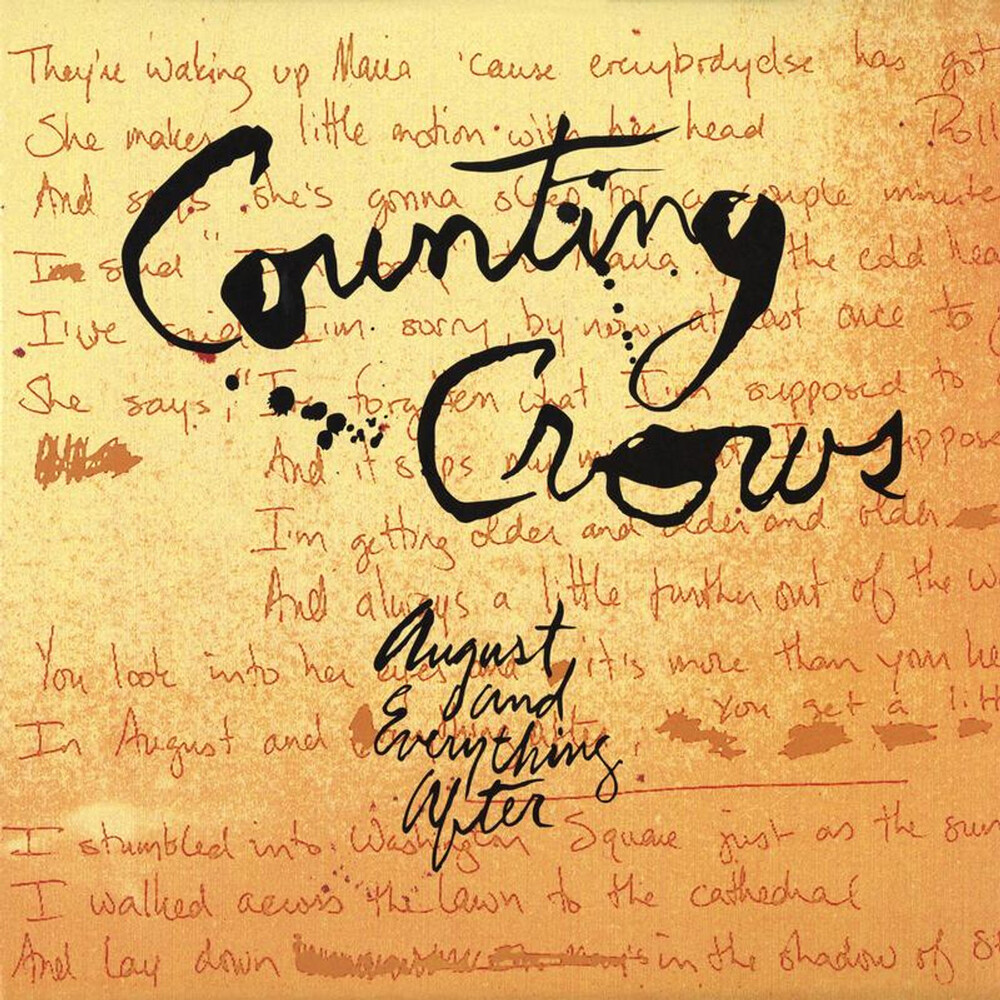 They're waking up Maria 'cause everybodyelse has got
She makes little motion with her head
And says she's gonna sleep for a couple minute
I'm said the cold hea
I've said I'm sorry by now at least once to
She says, "I've forgotten what I'm supposed to
And it slips my mind what I'm suppose
I'm getting older and older and older
And always a little further out of the w
You look into her eyes and it's more than your hea
you get a litt
In August and
I stumbled into Washington Square just as the sun
I walked across the lawn to the cathedral
And lay down in the shadow of St
Counting
Crows
August
and
Everything
After